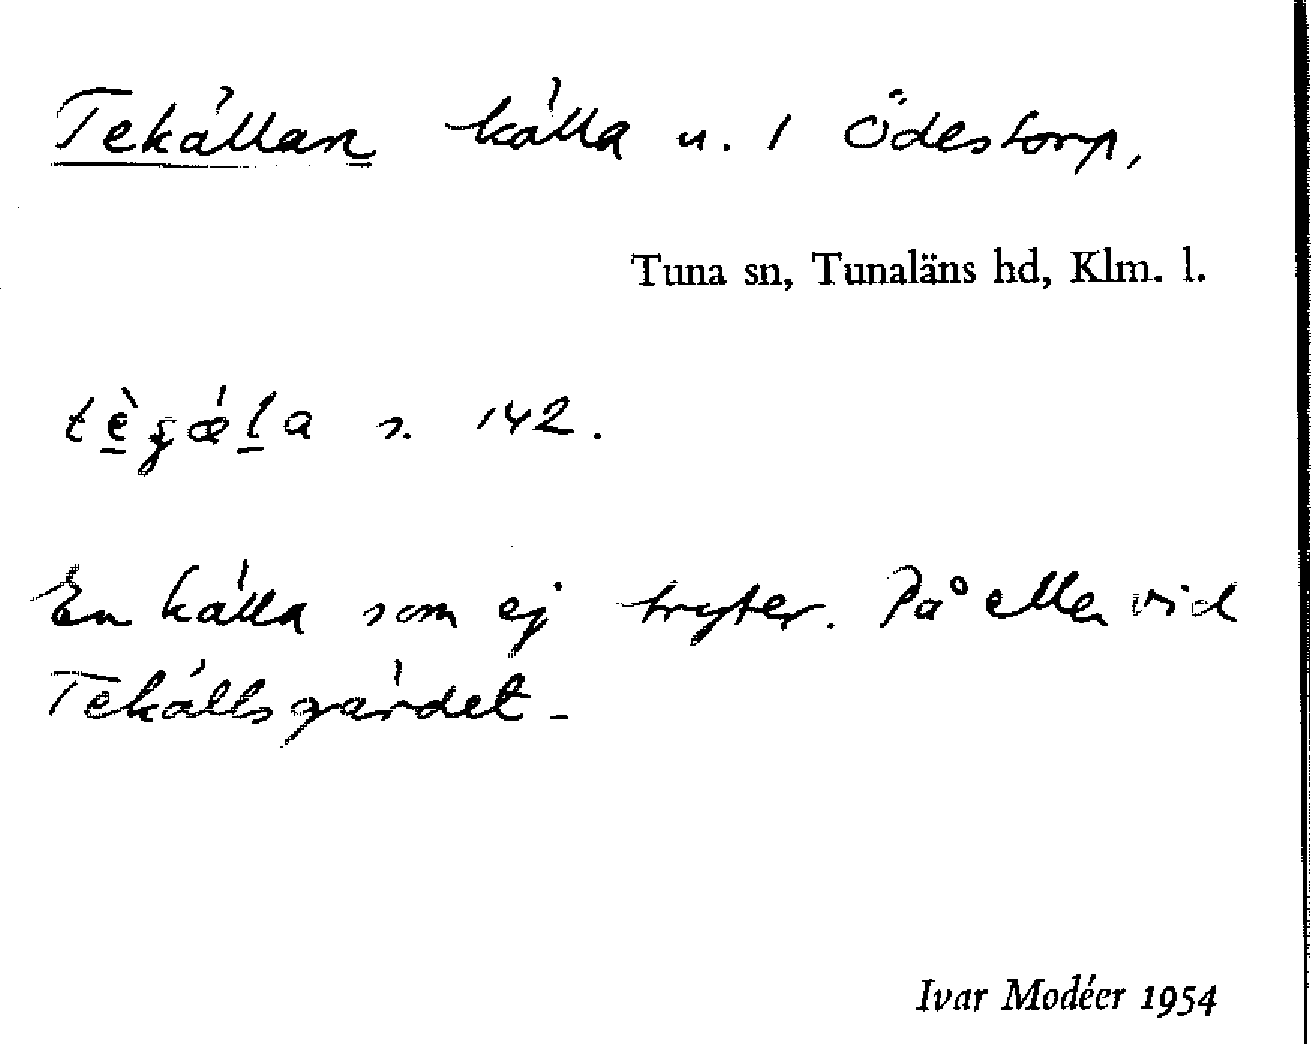 Tekällan källa u. 1 Ödestorp,
Tuna sn, Tunaläns hd, Klm. l.
s. 142.
En källa som ej tryter. På eller vid
Tekällsgärdet.
Ivar Modéer 1954